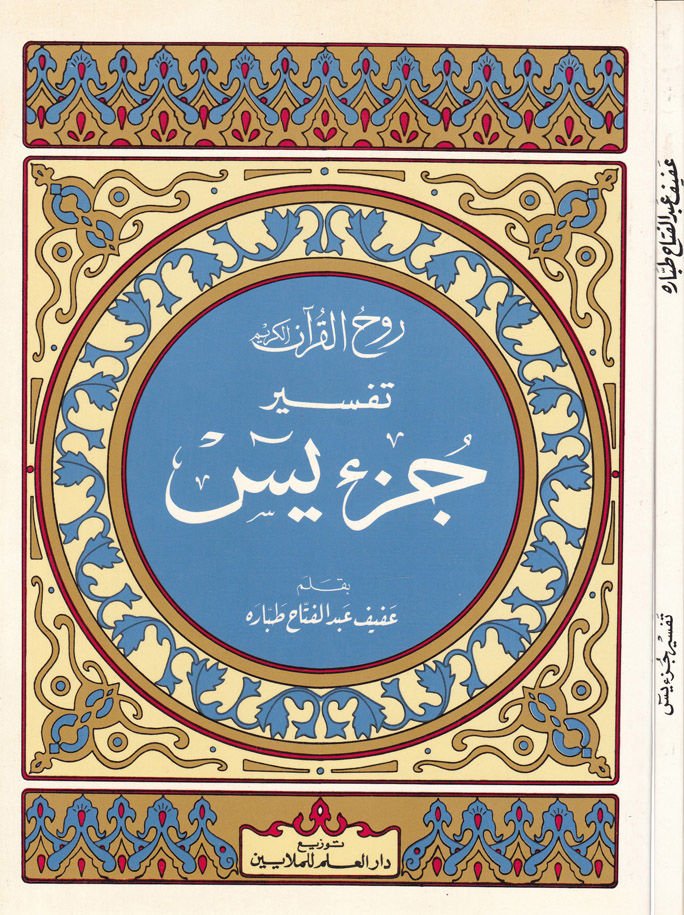 روحُ القُرآن الكريم
تفسير
جُزء يسٓ
بقلم
عَفيف عَبد الفتّاح طبّاره
توزيع
دار العلم للملايين
عَفيف عَبد الفتّاح طبّاره
تفسير جُزء يسٓ